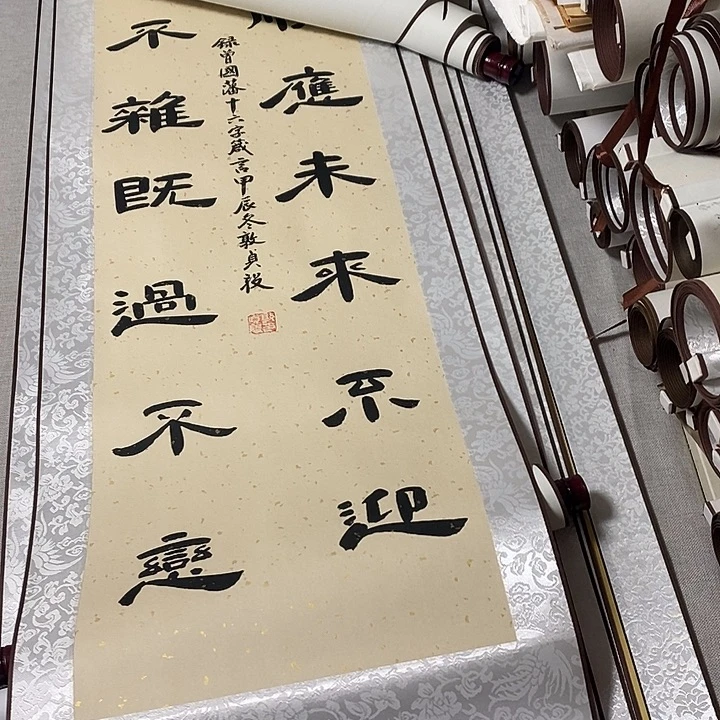 應未來不迎
不雜既過不戀
錄曾國藩十六字箴言甲辰冬敦貞